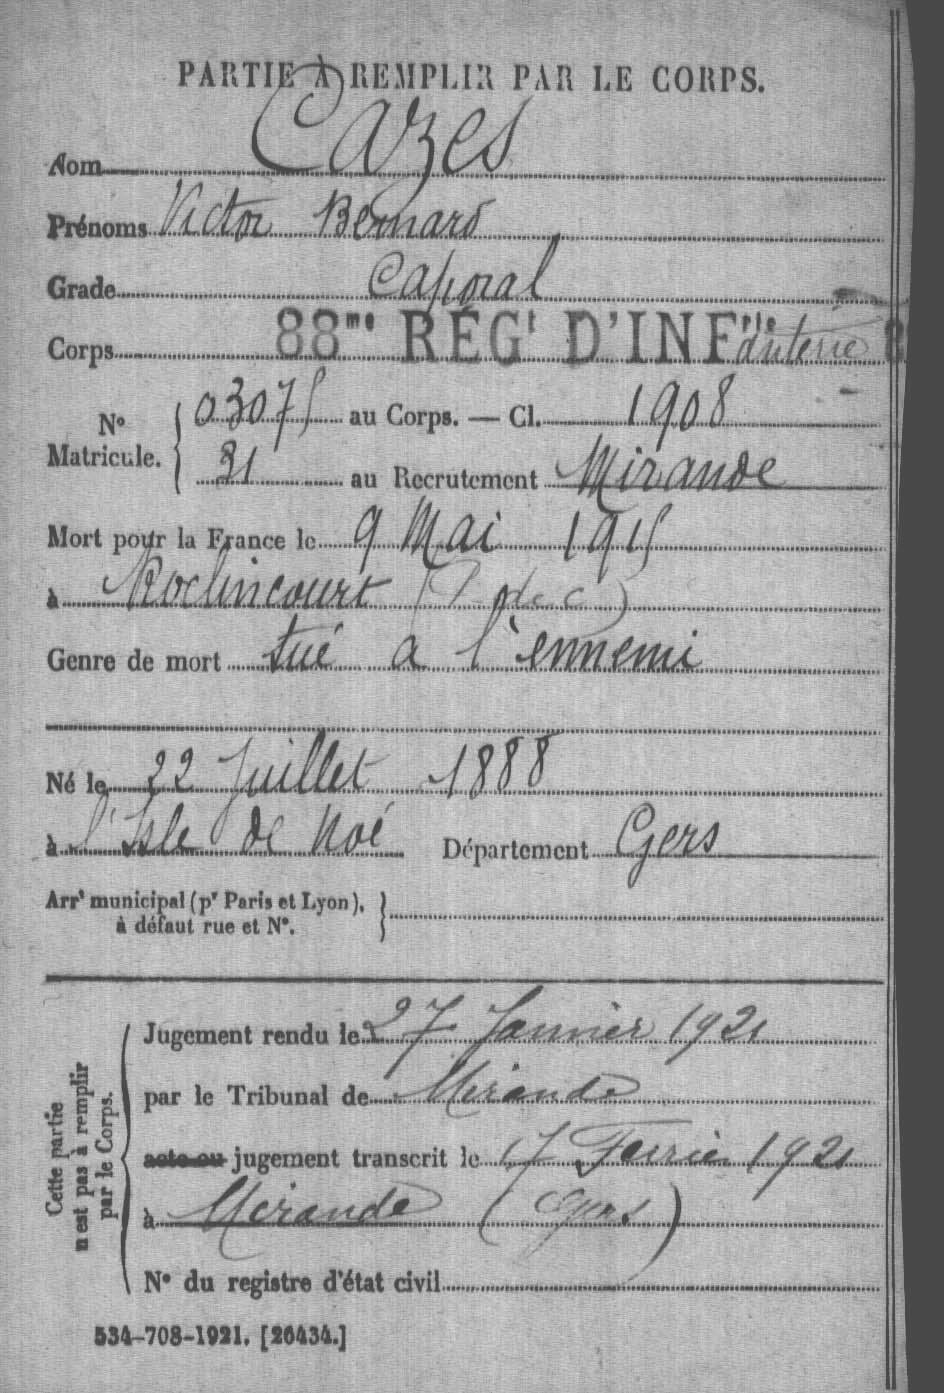 PARTIE À REMPLIR PAR LE CORPS.
Nom Cazes
Prénoms Victor Bernard
Grade Caporal
Corps 88me RÉGt D'INFrie anterie
No Matricule. { 03075 au Corps. — Cl. 1908
31 au Recrutement Mirande
Mort pour la France le 9 Mai 1915
à Roclincourt (P. de C)
Genre de mort tué à l'ennemi
Né le 22 Juillet 1888
à l'Isle de Noé Département Gers
Arrt municipal (pr Paris et Lyon),
à défaut rue et No.
Cette partie
n'est pas à remplir
par le Corps.
Jugement rendu le 27 Janvier 1921
par le Tribunal de Mirande
acte ou jugement transcrit le 17 Fevrier 1921
à Mirande (Gers)
No du registre d'état civil
534-708-1921. [26434.]